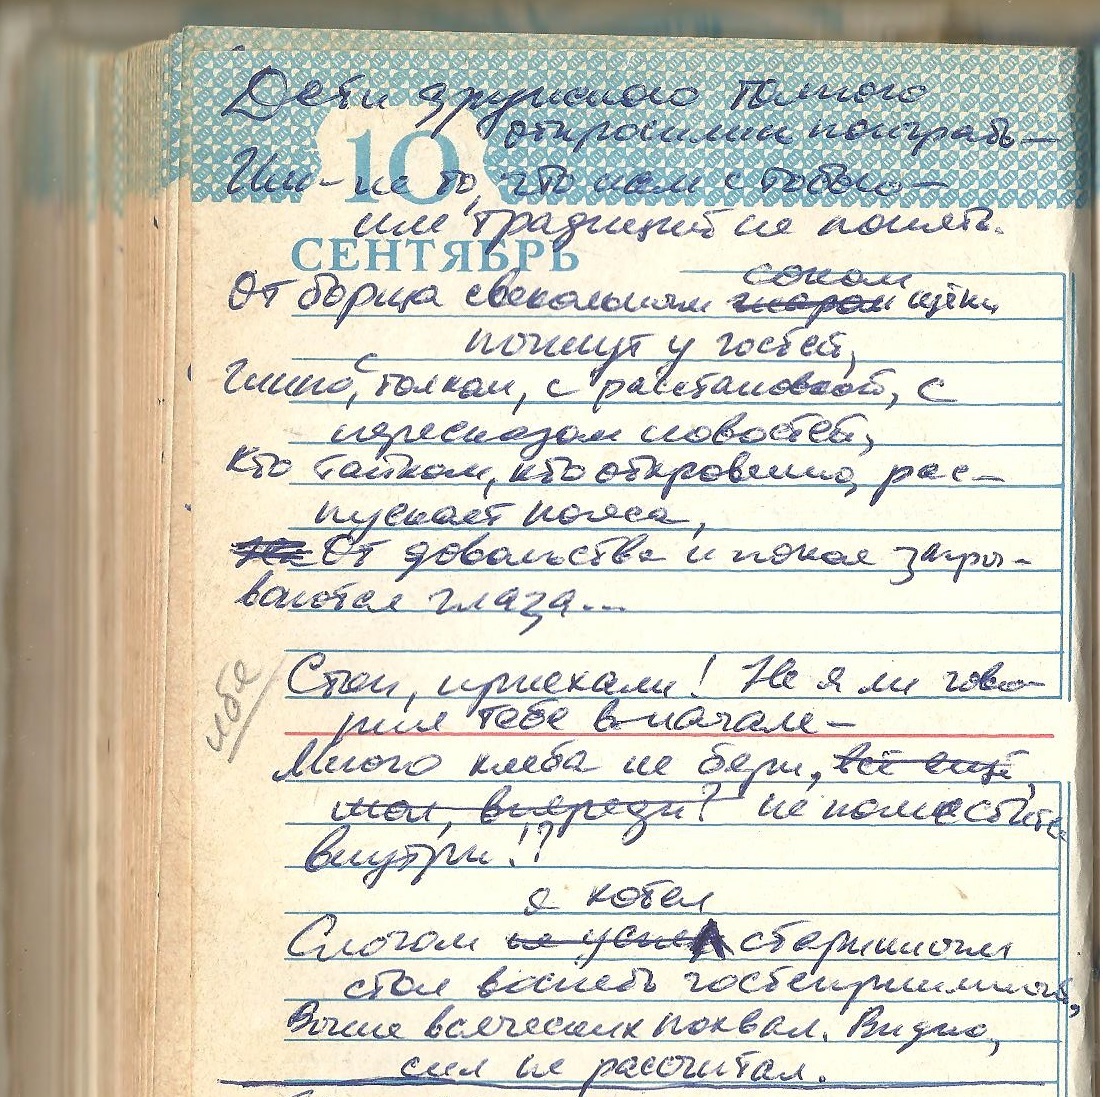 Дети дружного толкого
10
откросилии поиграть—
Им – не то, что нам с тобою—
им традиций не понять.
СЕНТЯБРЬ
соком
От борща свекольным жаром щёки
похнут у гостей,
Чинно, с толком, с расстановкой, с
пересказом новостей,
Кто тайком, кто откровенно, рас-
пускает пояса,
От довольства и покоя закры-
ваются глаза...
Стоп, приехали! Не я ли гово-
рил тебе в начале—
Много хлеба не бери, всё ещё,
мол, впереди? не поместится
внутри!?
я хотел
Слогом не успел старинным
стол воспеть гостеприимный,
Выше всяческих похвал. Видно,
сил не рассчитал.